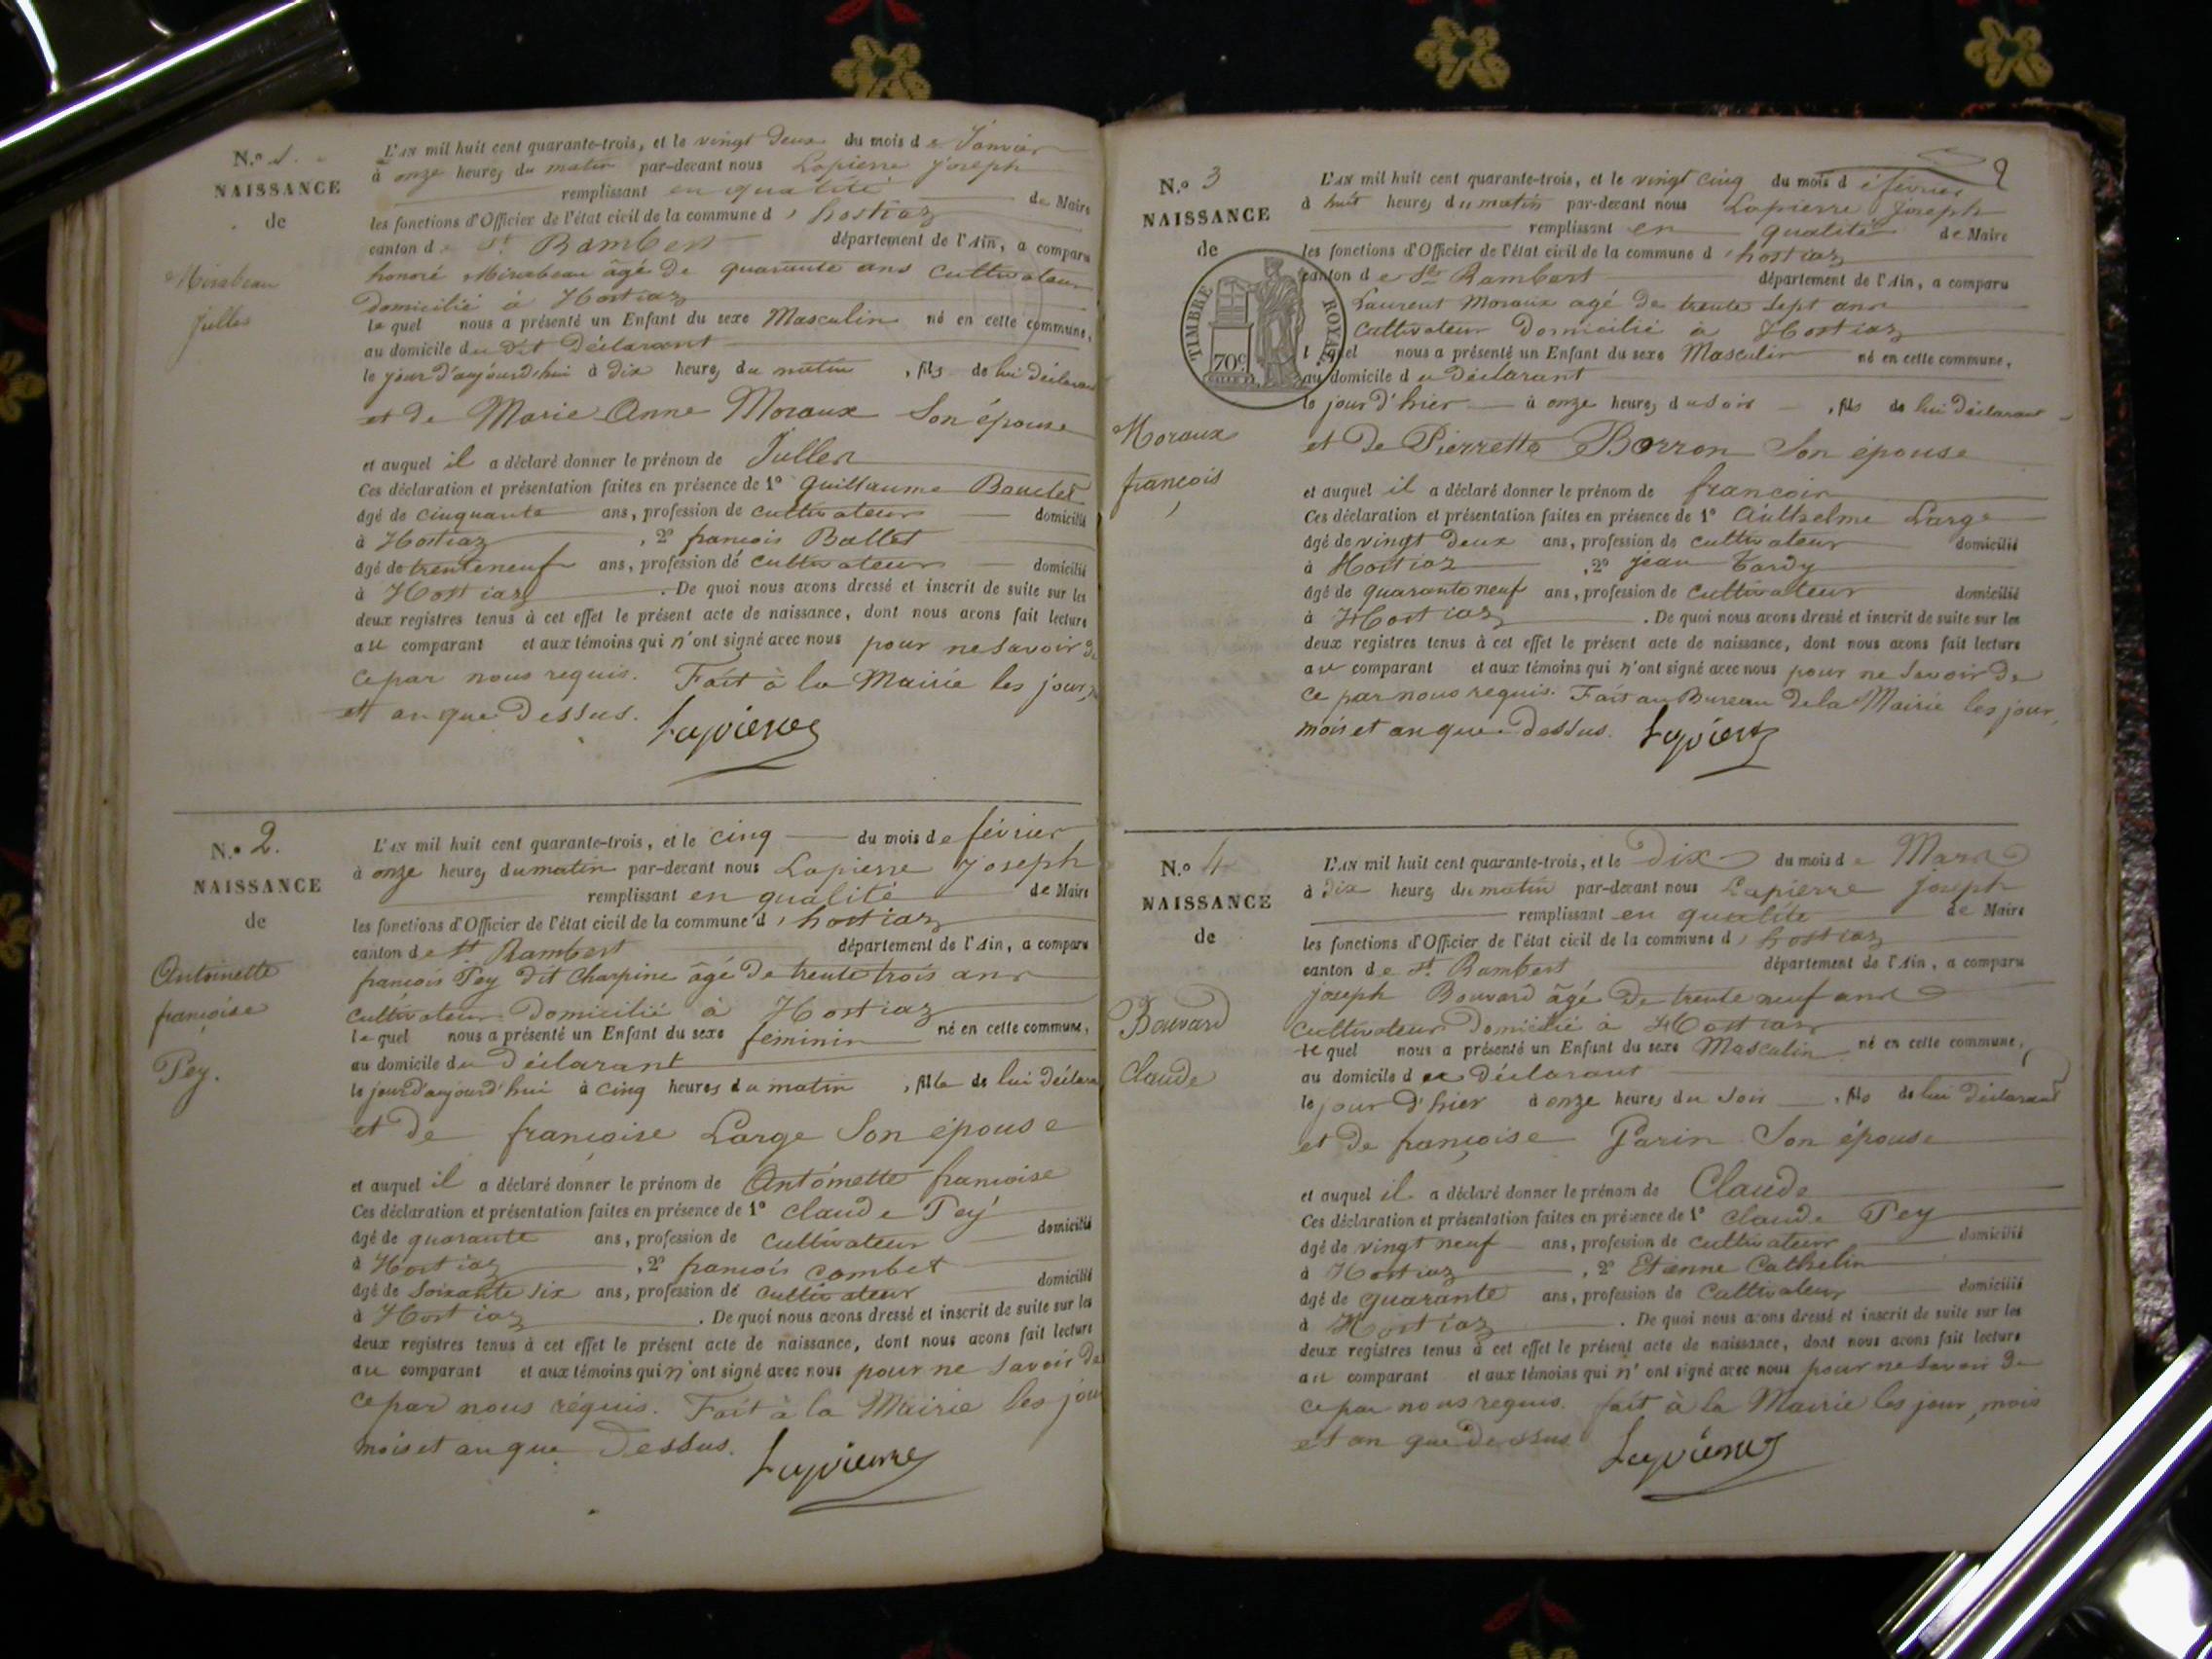 N.º 1.
NAISSANCE
de
Mirabeau
Julles
L'AN mil huit cent quarante-trois, et le vingt deux du mois de Janvier
à onze heures du matin par-devant nous Lapierre Joseph
remplissant en qualité de Maire
les fonctions d'Officier de l'état civil de la commune d'hostiaz
canton de St Rambert département de l'Ain, a comparu
honoré Mirabeau âgé de quarante ans cultivateur
domicilié à Hostiaz
lequel nous a présenté un Enfant du sexe Masculin né en cette commune,
au domicile du dit Déclarant
le jour d'aujourd'hui à dix heures du matin, fils de lui déclarant
et de Marie Anne Moraux Son épouse
et auquel il a déclaré donner le prénom de Julles
Ces déclaration et présentation faites en présence de 1º Guillaume
âgé de cinquante ans, profession de cultivateur domicilié
à Hostiaz, 2º françois Ballet
âgé de trente neuf ans, profession de cultivateur domicilié
à Hostiaz. De quoi nous avons dressé et inscrit de suite sur les
deux registres tenus à cet effet le présent acte de naissance, dont nous avons fait lecture
au comparant et aux témoins qui n'ont signé avec nous pour ne savoir de
ce par nous requis. Fait à la Mairie les jour,
et an que Dessus. Lapierre
N.º 2.
NAISSANCE
de
Antoinette
françoise
Pey.
L'AN mil huit cent quarante-trois, et le cinq du mois de février
à onze heures du matin par-devant nous Lapierre Joseph
remplissant en qualité de Maire
les fonctions d'Officier de l'état civil de la commune d'hostiaz
canton de St Rambert département de l'Ain, a comparu
françois Pey dit Charpine âgé de trente trois ans
cultivateur Domicilié à Hostiaz
lequel nous a présenté un Enfant du sexe féminin né en cette commune,
au domicile du Déclarant
le jour d'aujourd'hui à cinq heures du matin, fille de lui Déclara
et de françoise Large Son épouse
et auquel il a déclaré donner le prénom de Antoinette françoise
Ces déclaration et présentation faites en présence de 1º Claude Pey
âgé de quarante ans, profession de cultivateur domicilié
à Hostiaz, 2º françois Combet
âgé de Soixante six ans, profession de cultivateur domicilié
à Hostiaz. De quoi nous avons dressé et inscrit de suite sur les
deux registres tenus à cet effet le présent acte de naissance, dont nous avons fait lecture
au comparant et aux témoins qui n'ont signé avec nous pour ne savoir de
ce par nous réquis. Fait à la Mairie les jour
mois et an que Dessus. Lapierre
2
N.º 3
NAISSANCE
de
TIMBRE ROYAL
70c
Moraux
françois
L'AN mil huit cent quarante-trois, et le vingt cinq du mois de février
à huit heures du matin par-devant nous Lapierre Joseph
remplissant en qualité de Maire
les fonctions d'Officier de l'état civil de la commune d'hostiaz
canton de St Rambert département de l'Ain, a comparu
Laurent Moraux agé de trente sept ans
Cultivateur Domicilié à Hostiaz
lequel nous a présenté un Enfant du sexe Masculin né en cette commune,
au domicile du déclarant
le jour d'hier à onze heures du soir, fils de lui déclarant
et de Pierrette Borron Son épouse
et auquel il a déclaré donner le prénom de francois
Ces déclaration et présentation faites en présence de 1º Anthelme Large
âgé de vingt deux ans, profession de cultivateur domicilié
à Hostiaz, 2º jean Tardy
âgé de quarante neuf ans, profession de cultivateur domicilié
à Hostiaz. De quoi nous avons dressé et inscrit de suite sur les
deux registres tenus à cet effet le présent acte de naissance, dont nous avons fait lecture
au comparant et aux témoins qui n'ont signé avec nous pour ne savoir de
ce par nous requis. Fait au Bureau de la Mairie les jour,
mois et an que dessus. Lapierre
N.º 4
NAISSANCE
de
Bouvard
Claude
L'AN mil huit cent quarante-trois, et le Dix du mois de Mars
à dix heures du matin par-devant nous Lapierre Joseph
remplissant en qualité de Maire
les fonctions d'Officier de l'état civil de la commune d'hostiaz
canton de St Rambert département de l'Ain, a comparu
joseph Bouvard âgé De trente neuf ans
Cultivateur Domicilié à Hostiaz
lequel nous a présenté un Enfant du sexe Masculin né en cette commune,
au domicile du Déclarant
le jour D'hier à onze heures du Soir, fils de lui Déclarant
et De françoise Parin Son épouse
et auquel il a déclaré donner le prénom de Claude
Ces déclaration et présentation faites en présence de 1º Claude Pey
âgé de vingt neuf ans, profession de cultivateur domicilié
à Hostiaz, 2º Etienne Cathelin
âgé de quarante ans, profession de Cultivateur domicilié
à Hostiaz. De quoi nous avons dressé et inscrit de suite sur les
deux registres tenus à cet effet le présent acte de naissance, dont nous avons fait lecture
au comparant et aux témoins qui n'ont signé avec nous pour ne Savoir de
ce par nous requis. fait à la Mairie les jour, mois
et an que dessus Lapierre